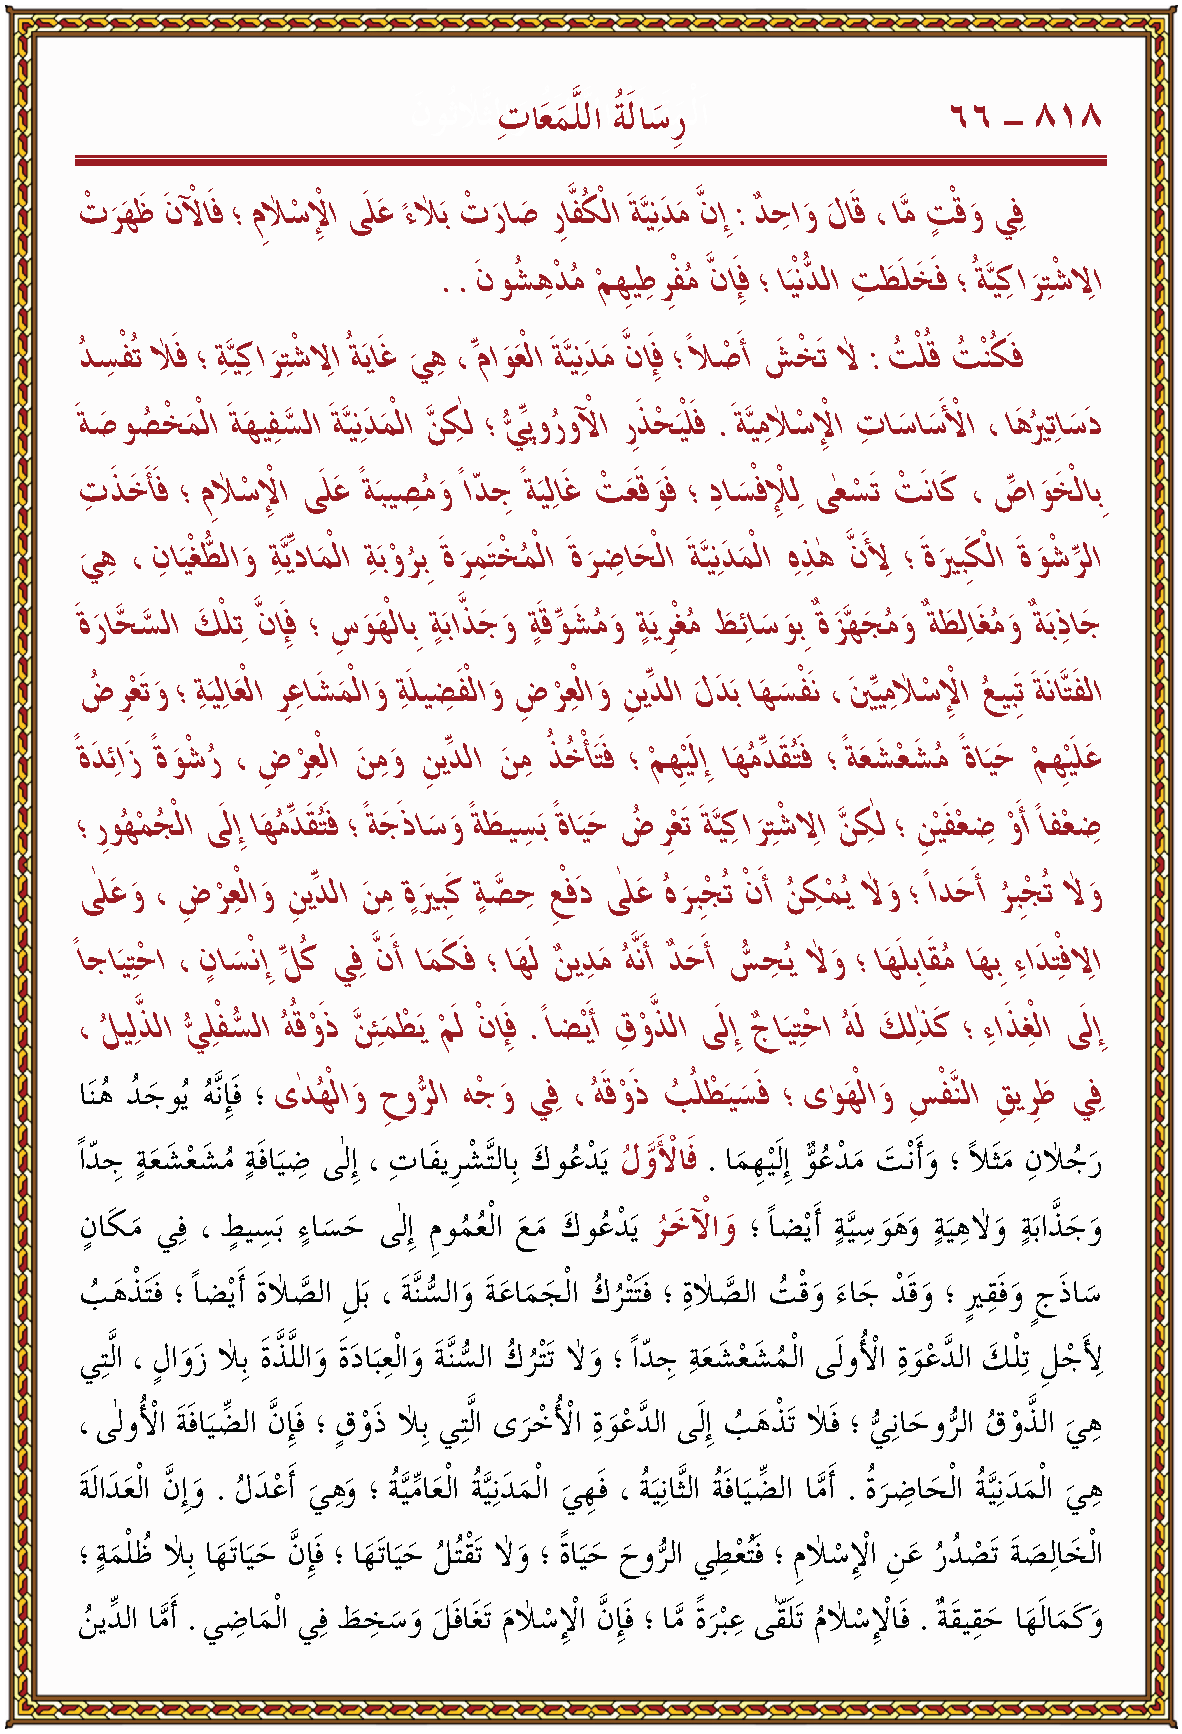 رِسَالَةُ اللَّمَعَاتِ ٨١٨ – ٦٦
فِي وَقْتٍ مَّا ، قَالَ وَاحِدٌ : إِنَّ مَدَنِيَّةَ الْكُفَّارِ صَارَتْ بَلَاءً عَلَى الْإِسْلَامِ ؛ فَالْآنَ ظَهَرَتْ
الِاشْتِرَاكِيَّةُ ؛ فَخَلَطَتِ الدُّنْيَا ؛ فَإِنَّ مُفْرِطِيهِمْ مُدْهِشُونَ . .
فَكُنْتُ قُلْتُ : لَا تَخْشَ أَصْلًا ؛ فَإِنَّ مَدَنِيَّةَ الْعَوَامِّ ، هِيَ غَايَةُ الِاشْتِرَاكِيَّةِ ؛ فَلَا تُفْسِدُ
دَسَاتِيرُهَا ، الْأَسَاسَاتِ الْإِسْلَامِيَّةَ . فَلْيَحْذَرِ الْآوْرُوپِيُّ ؛ لٰكِنَّ الْمَدَنِيَّةَ السَّفِيهَةَ الْمَخْصُوصَةَ
بِالْخَوَاصِّ ، كَانَتْ تَسْعٰى لِلْإِفْسَادِ ؛ فَوَقَعَتْ غَالِيَةً جِدّاً وَمُصِيبَةً عَلَى الْإِسْلَامِ ؛ فَأَخَذَتِ
الرِّشْوَةَ الْكَبِيرَةَ ؛ لِأَنَّ هٰذِهِ الْمَدَنِيَّةَ الْحَاضِرَةَ الْمُخْتَمِرَةَ بِرُوبَةِ الْمَادِّيَّةِ وَالطُّغْيَانِ ، هِيَ
جَاذِبَةٌ وَمُغَالِطَةٌ وَمُجَهَّزَةٌ بِوَسَائِطَ مُغْرِيَةٍ وَمُشَوِّقَةٍ وَجَذَّابَةٍ بِالْهَوَسِ ؛ فَإِنَّ تِلْكَ السَّحَّارَةَ
الْفَتَّانَةَ تَبِيعُ الْإِسْلَامِيِّينَ ، نَفْسَهَا بَدَلَ الدِّينِ وَالْعِرْضِ وَالْفَضِيلَةِ وَالْمَشَاعِرِ الْعَالِيَةِ ؛ وَتَعْرِضُ
عَلَيْهِمْ حَيَاةً مُشَعْشَعَةً ؛ فَتُقَدِّمُهَا إِلَيْهِمْ ؛ فَتَأْخُذُ مِنَ الدِّينِ وَمِنَ الْعِرْضِ ، رُشْوَةً زَائِدَةً
ضِعْفاً أَوْ ضِعْفَيْنِ ؛ لٰكِنَّ الِاشْتِرَاكِيَّةَ تَعْرِضُ حَيَاةً بَسِيطَةً وَسَاذَجَةً ؛ فَتُقَدِّمُهَا إِلَى الْجُمْهُورِ ؛
وَلَا تُجْبِرُ أَحَداً ؛ وَلَا يُمْكِنُ أَنْ تُجْبِرَهُ عَلٰى دَفْعِ حِصَّةٍ كَبِيرَةٍ مِنَ الدِّينِ وَالْعِرْضِ ، وَعَلٰى
الِافْتِدَاءِ بِهَا مُقَابِلَهَا ؛ وَلَا يُحِسُّ أَحَدٌ أَنَّهُ مَدِينٌ لَهَا ؛ فَكَمَا أَنَّ فِي كُلِّ إِنْسَانٍ ، احْتِيَاجاً
إِلَى الْغِذَاءِ ؛ كَذٰلِكَ لَهُ احْتِيَاجٌ إِلَى الذَّوْقِ أَيْضاً . فَإِنْ لَمْ يَطْمَئِنَّ ذَوْقُهُ السُّفْلِيُّ الذَّلِيلُ ،
فِي طَرِيقِ النَّفْسِ وَالْهَوٰى ؛ فَسَيَطْلُبُ ذَوْقَهُ ، فِي وَجْهِ الرُّوحِ وَالْهُدٰى ؛ فَإِنَّهُ يُوجَدُ هُنَا
رَجُلَانِ مَثَلاً ؛ وَأَنْتَ مَدْعُوٌّ إِلَيْهِمَا . فَالْأَوَّلُ يَدْعُوكَ بِالتَّشْرِيفَاتِ ، إِلٰى ضِيَافَةٍ مُشَعْشَعَةٍ جِدّاً
وَجَذَّابَةٍ وَلَاهِيَةٍ وَهَوَسِيَّةٍ أَيْضاً ؛ وَالْآخَرُ يَدْعُوكَ مَعَ الْعُمُومِ إِلٰى حَسَاءٍ بَسِيطٍ ، فِي مَكَانٍ
سَاذَجٍ وَفَقِيرٍ ؛ وَقَدْ جَاءَ وَقْتُ الصَّلَاةِ ؛ فَتَتْرُكُ الْجَمَاعَةَ وَالسُّنَّةَ ، بَلِ الصَّلَاةَ أَيْضاً ؛ فَتَذْهَبُ
لِأَجْلِ تِلْكَ الدَّعْوَةِ الْأُولَى الْمُشَعْشَعَةِ جِدّاً ؛ وَلَا تَتْرُكُ السُّنَّةَ وَالْعِبَادَةَ وَاللَّذَّةَ بِلَا زَوَالٍ ، الَّتِي
هِيَ الذَّوْقُ الرُّوحَانِيُّ ؛ فَلَا تَذْهَبُ إِلَى الدَّعْوَةِ الْأُخْرَى الَّتِي بِلَا ذَوْقٍ ؛ فَإِنَّ الضِّيَافَةَ الْأُولٰى ،
هِيَ الْمَدَنِيَّةُ الْحَاضِرَةُ . أَمَّا الضِّيَافَةُ الثَّانِيَةُ ، فَهِيَ الْمَدَنِيَّةُ الْعَامِّيَّةُ ؛ وَهِيَ أَعْدَلُ . وَإِنَّ الْعَدَالَةَ
الْخَالِصَةَ تَصْدُرُ عَنِ الْإِسْلَامِ ؛ فَتُعْطِي الرُّوحَ حَيَاةً ؛ وَلَا تَقْتُلُ حَيَاتَهَا ؛ فَإِنَّ حَيَاتَهَا بِلَا ظُلْمَةٍ ؛
وَكَمَالَهَا حَقِيقَةٌ . فَالْإِسْلَامُ تَلَقّٰى عِبْرَةً مَّا ؛ فَإِنَّ الْإِسْلَامَ تَغَافَلَ وَسَخِطَ فِي الْمَاضِي . أَمَّا الدِّينُ